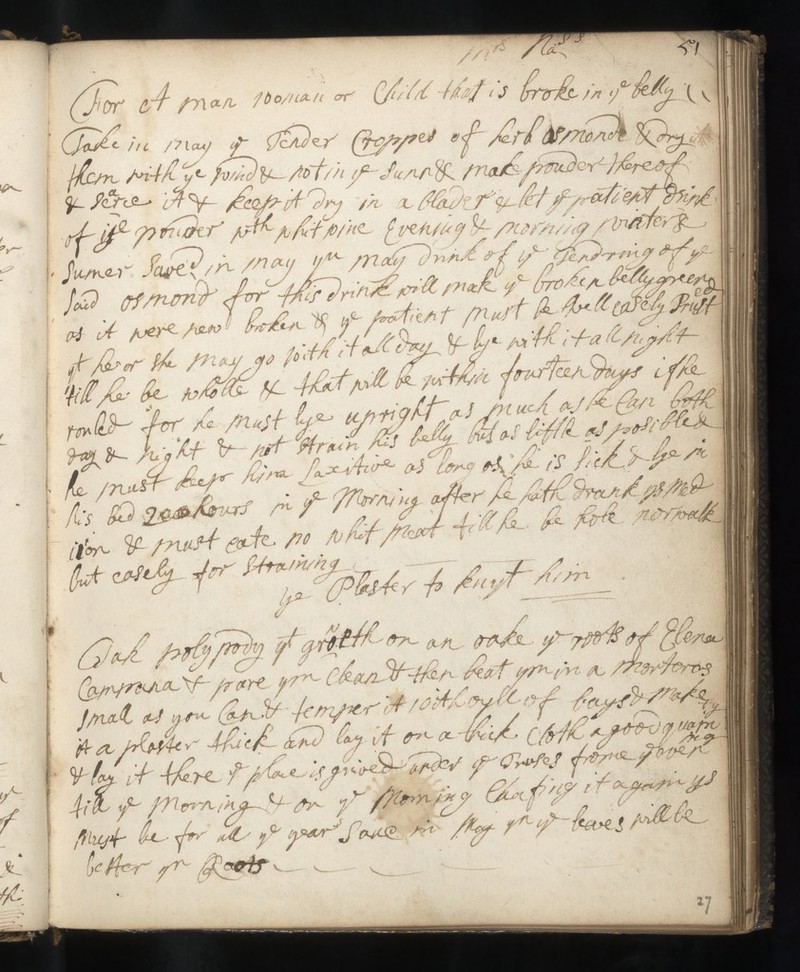 Mrs 51
For A man woman or Child that is broke in ye belly
Take in may ye Tender Croppes of herb osmonde & dry
them with ye wind & not in ye Sunn & make pouder thereof
& searse it & keep it dry in a blader & let ye patient drink
of ye pouder wth whit wine Evening & morning winter &
Sumer Saved in may yn may drink of ye Tendring of ye
said osmond for this drink will make ye broken belly greene
as it were new broken & ye patient must be well easely Trust
yt he or she may go with it all day & lye with it all night
till he be wholle & that will be within fourteen days if he
rouled for he must lye upright as much as he Can both
day & night & not strain his belly but as little as posible &
he must keep him Laxitive as long as he is sick & lye in
his bed 2 hours in ye Morning after he hath drank ys Med
ison & must eate no whit meat till he be hole nor walk
but easely for straining
ye Plaster to knyt him
Tak polypody yt groeth on an oake ye roots of Elena
Campana & pare ym Clean & then beat ym in a morter as
small as you Can & temper it with oyll of bays & make
it a plaster thick and lay it on a thick Cloth a good
& lay it there ye place is grived under ye Truses frome ye
till ye morning & on ye Morning Chafing it again ys
must be for all ye year Save in May yn ye leaves will be
better yn Roots
27